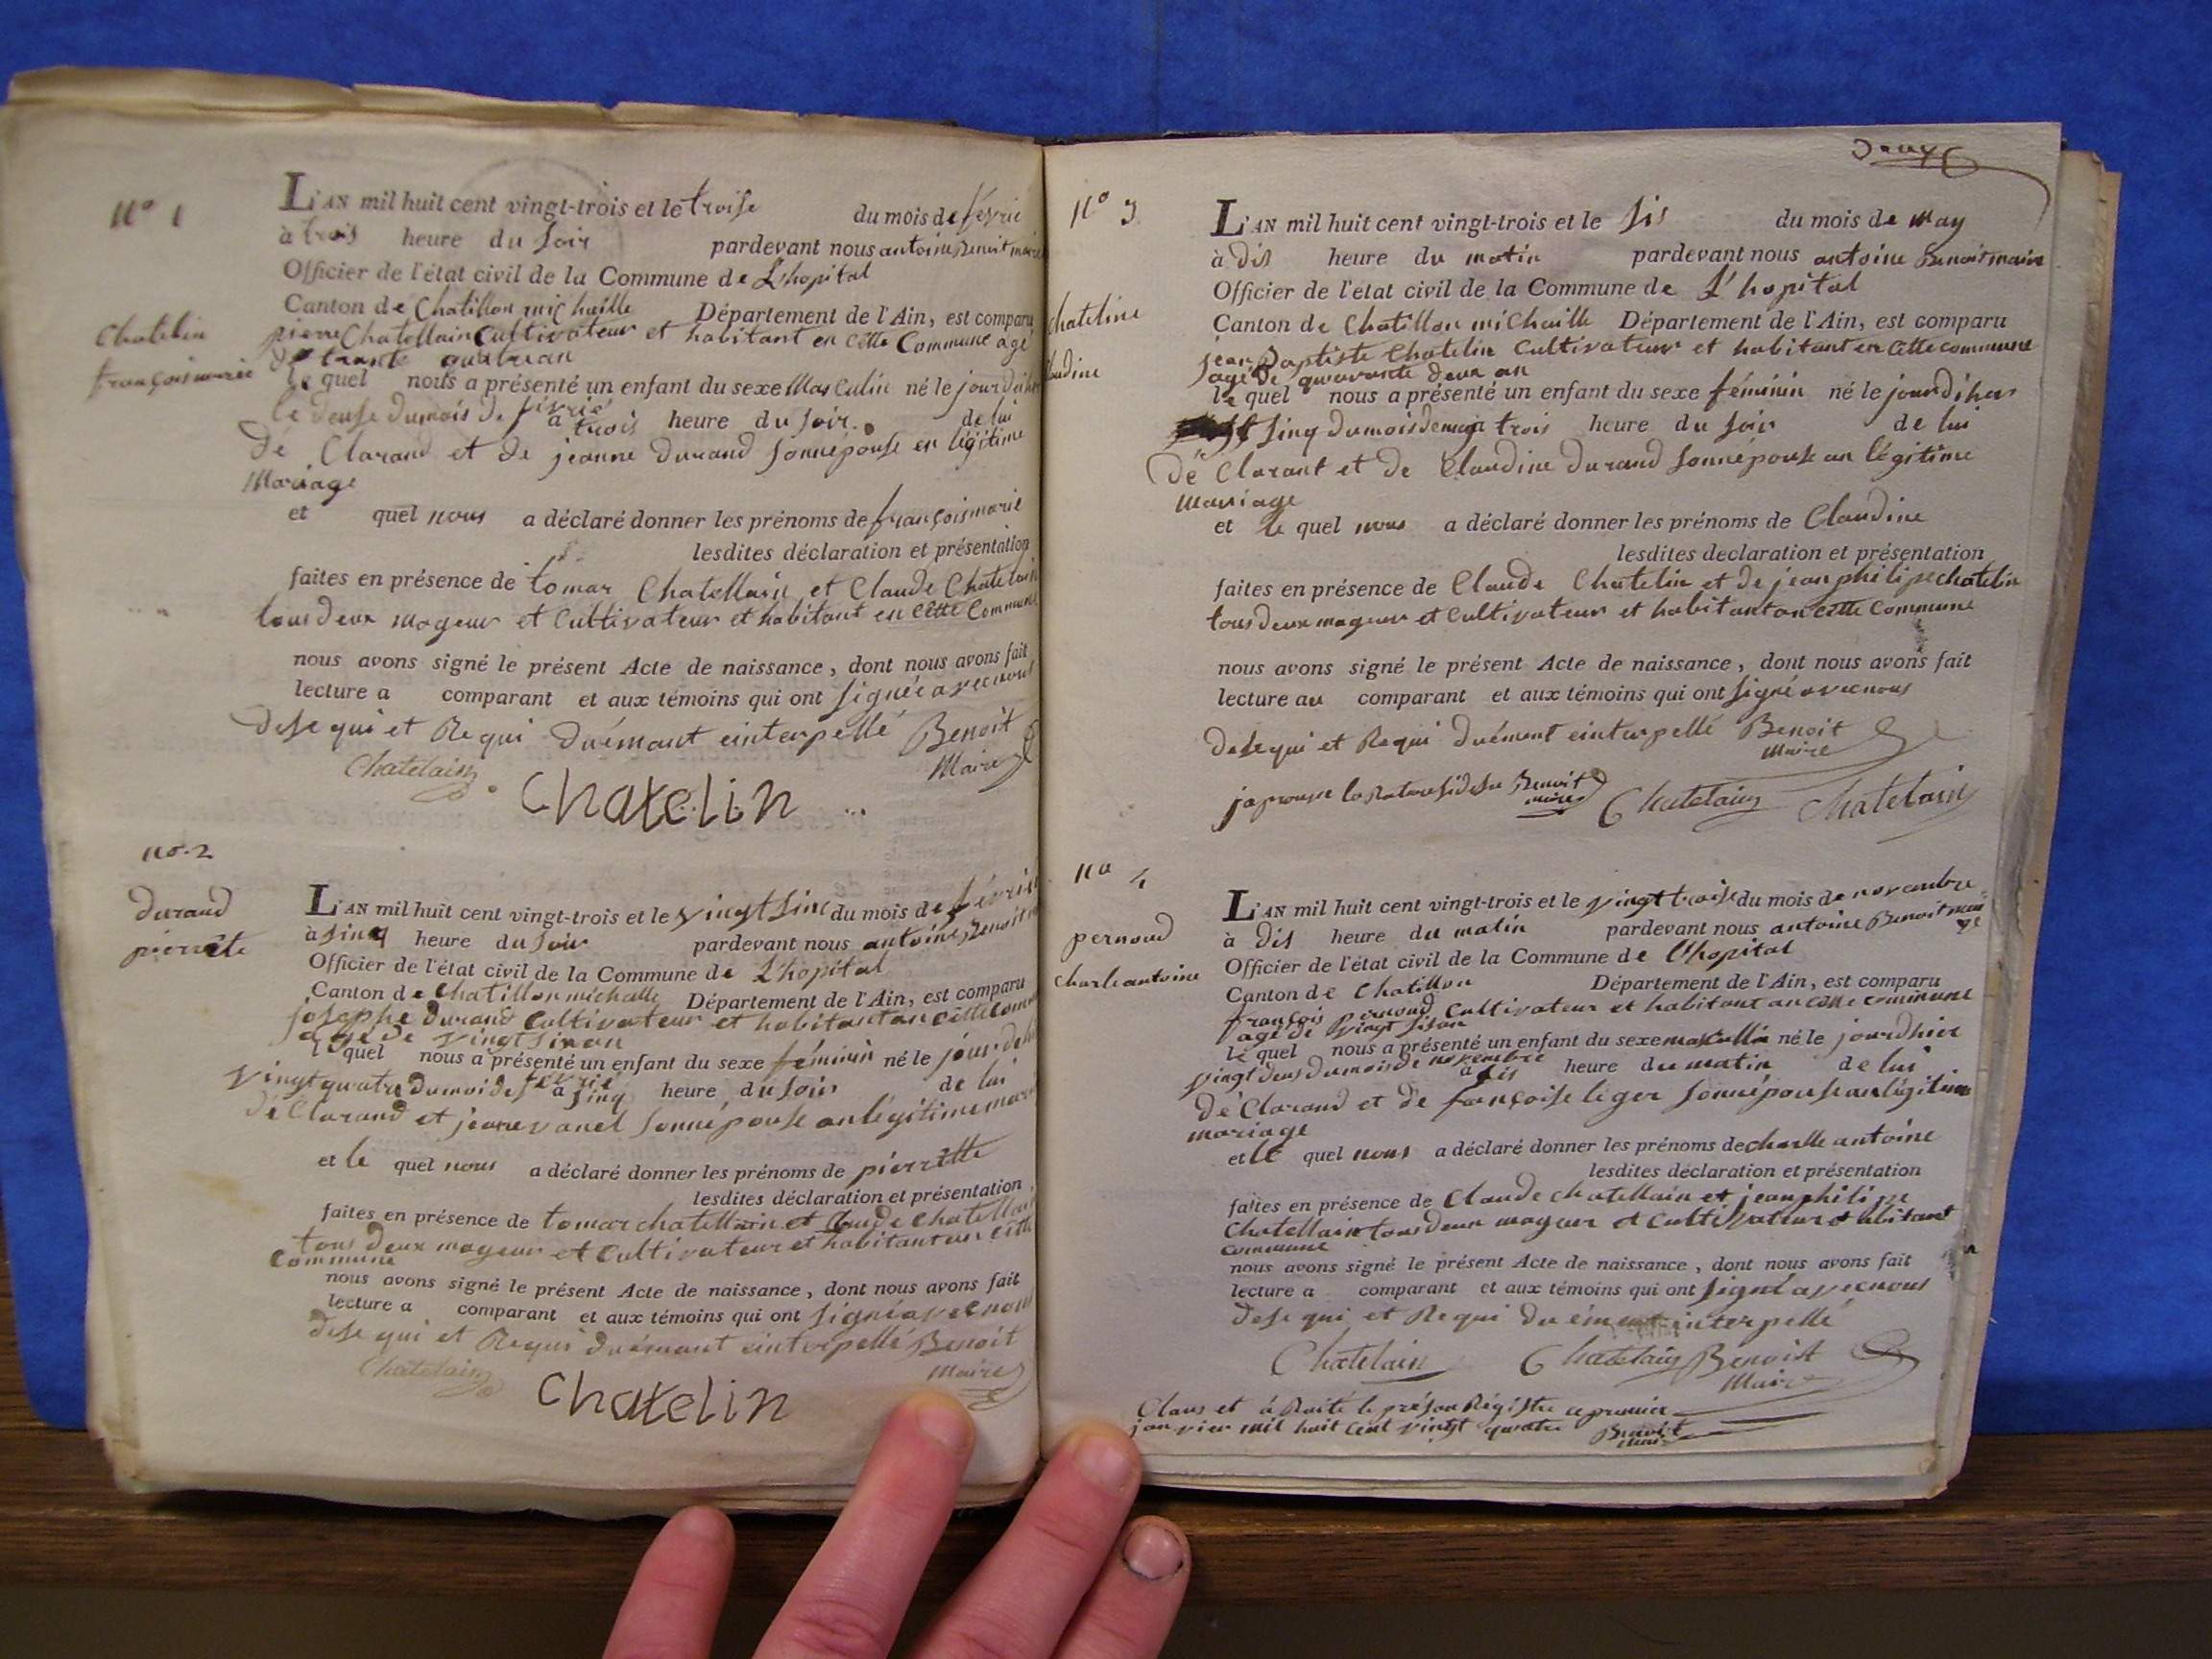 N° 1
Chatelin
françoismarie
L'AN mil huit cent vingt-trois et le treise du mois de févrié
à trois heure du soir pardevant nous antoine Benoit maire
Officier de l'état civil de la Commune de L'hopital
Canton de Chatillon michaille Département de l'Ain, est comparu
pierre Chatellain Cultivateur et habitant en cette Commune agé
de trante quatre an
le quel nous a présenté un enfant du sexe Masculin né le jour dihier
le douse du mois de févrié à trois heure du soir. de lui
dé Clarand et de jeanne durand sonnépouse en légitime
Mariage
et quel nous a déclaré donner les prénoms de françoismarie
lesdites déclaration et présentation
faites en présence de tomar Chatellain et Claude Chatelain
tous deux mageur et Cultivateur et habitant en cette Commune
nous avons signé le présent Acte de naissance, dont nous avons fait
lecture a comparant et aux témoins qui ont signée avecnous
dese qui et Requi duémant einterpellé Benoit
Maire
Chatelain
Chatelin
no. 2
durand
pierrette
L'AN mil huit cent vingt-trois et le vingt sinc du mois de février
à sinq heure du soir pardevant nous antoine Benoit
Officier de l'état civil de la Commune de L'hopital
Canton de Chatillon michalle Département de l'Ain, est comparu
josephe durand Cultivateur et habitantan cette
agé de vingt
le quel nous a présenté un enfant du sexe féminin né le jour
vingt quatre dumoi de févrié à sinq heure du soir de lui
dé Clarand et jeanevanel sonnépouse anlégitime
et le quel nous a déclaré donner les prénoms de pierrette
lesdites déclaration et présentation
faites en présence de tomar chatellain et Claude Chatellain
tous deux mageur et Cultivateur et habitant an cette
Commune
nous avons signé le présent Acte de naissance, dont nous avons fait
lecture a comparant et aux témoins qui ont signéavecnous
dese qui et Requi duémant einterpellé Benoit
Maire
Chatelain
Chatelin
N° 3
chateline
L'AN mil huit cent vingt-trois et le sis du mois de May
à dis heure du matin pardevant nous antoine Benoit maire
Officier de l'état civil de la Commune de L'hopital
Canton de Chatillon michaille Département de l'Ain, est comparu
jean Baptiste Chatelin Cultivateur et habitant en Cette commune
agé de quarante deux an
le quel nous a présenté un enfant du sexe féminin né le jour dihier
sinq du mois de may à trois heure du soir de lui
dé Clarant et de Claudine durand sonnépouse an légitime
mariage
et le quel nous a déclaré donner les prénoms de Claudine
lesdites declaration et présentation
faites en présence de Claude Chatelin et de jean philipe chatelin
tous deux mageur et Cultivateur et habitant an cette Commune
nous avons signé le présent Acte de naissance, dont nous avons fait
lecture au comparant et aux témoins qui ont signé avecnous
desequi et Requi duément einterpellé Benoit
Maire
japrouve la Rature sidesu Benoit
maire
Chatelain Chatelain
no 4
pernoud
charle antoine
L'AN mil huit cent vingt-trois et le vingt troise du mois de novembre
à dis heure du matin pardevant nous antoine Benoit
Officier de l'état civil de la Commune de L'hopital
Canton de Chatillon Département de l'Ain, est comparu
françois pernoud Cultivateur et habitant an cette commune
agé de vingt
le quel nous a présenté un enfant du sexe masculin né le jourdhier
vingt deus dumois de novembre à dis heure du matin de lui
dé Clarand et de françoise léger sonnépouse an légitime
mariage
et le quel nous a déclaré donner les prénoms de charlle antoine
lesdites déclaration et présentation
faites en présence de Claude chatellain et jeanphilipe
Chatellain tous deux mageur et Cultivateur et abitant
commune
nous avons signé le présent Acte de naissance, dont nous avons fait
lecture a comparant et aux témoins qui ont signé avecnous
dese qui et Requi duément interpellé
Chatelain Chatelain Benoit
Maire
Claus et a Raité le préson Régistre ce premier
janvier mil huit cent vingt quatre Benoit
maire